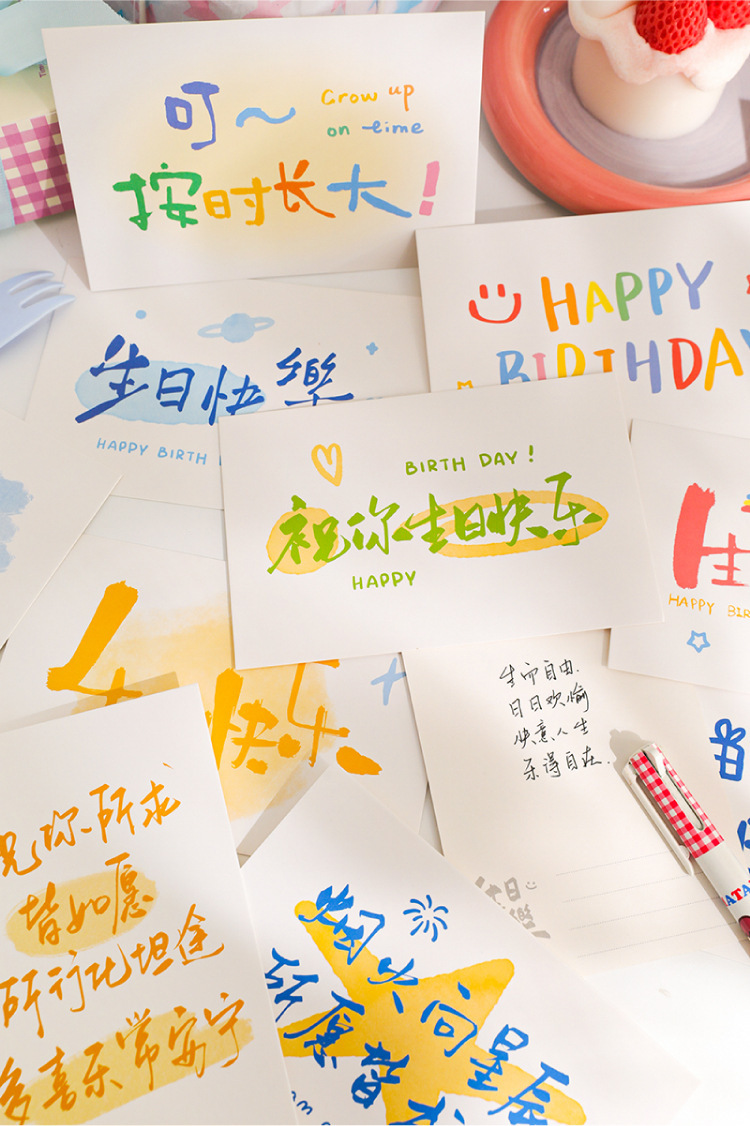 叮~
Grow up
on time
按时长大!
HAPPY
BIRTHDAY
生日快樂
HAPPY BIRTH
BIRTH DAY!
祝你生日快乐
HAPPY
HAPPY BIR
快乐
生而自由.
日日欢愉
快意人生
乐得自在.
祝你所求
皆如愿
所行化坦途
多喜乐常安宁
烟火向星辰
所愿皆成